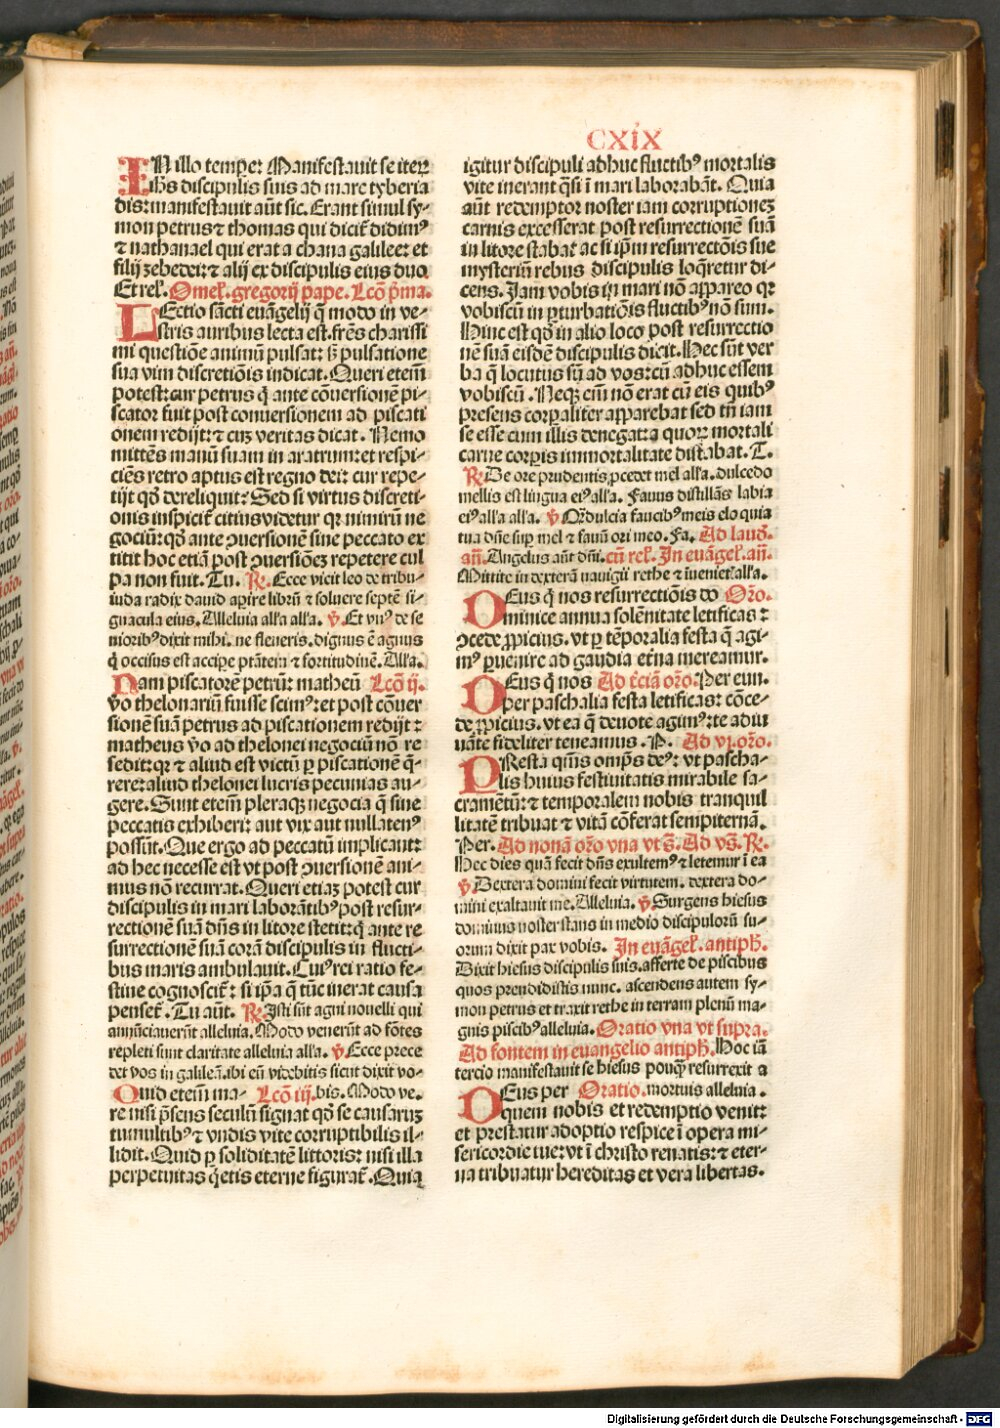 CXIX
IN illo tempe: Manifestauit se iteꝝ
ihs discipulis suis ad mare tyberia
dis: manifestauit aūt sic. Erant simul sy-
mon petrus ⁊ thomas qui dicit̄ didim⁹
⁊ nathanael qui erat a chana galilee: et
filij zebedei: ⁊ alij ex discipulis eius duo
Et rel. Omel. gregorij pape. Lcō p̄ma.
LEctio sācti euāgelij q̄ modo in ve-
stris auribus lecta est. fr̄es charissi
mi questiōe animū pulsat: sꝫ pulsatione
sua vim discretiōis indicat. Queri eteī
potest: cur petrus q̄ ante cōuersionē pi-
scator fuit post conuersionem ad piscati
onem redijt: ⁊ cuꝫ veritas dicat. Nemo
mittēs manū suam in aratrum: et respi-
ciēs retro aptus est regno dei: cur repe-
tijt qđ dereliquit: Sed si virtus discreti-
onis inspicit̄ citius videtur qꝛ nimirū ne
gociū: qđ ante ꝯuersionē sine peccato ex
titit hoc etiā post ꝯuersiōeꝫ repetere cul
pa non fuit. Tu. ℟. Ecce vicit leo de tribu-
iuda radix dauid apire librū ⁊ soluere septē si-
gnacula eius. Alleluia all'a all'a. ℣. Et vn⁹ de se
niorib⁹ dixit mihi. ne fleueris. dignus ē agnus
q̄ occisus est accipe ptātem ⁊ fortitudinē. All'a.
Nam piscatorē petrū: matheū Lcō ij.
vo thelonariū fuisse scim⁹: et post cōuer
sionē suā petrus ad piscationem redijt:
matheus v̄o ad thelonei negociū nō re
sedit: qꝛ ⁊ aliud est victū ꝑ piscationē q̄-
rere: aliud thelonei lucris pecunias au-
gere. Sunt eteīn pleraqꝫ negocia q̄ sine
peccatis exhiberi: aut vix aut nullaten⁹
possūt. Que ergo ad peccatū implicant:
ad hec necesse est vt post ꝯuersionē ani-
mus nō recurrat. Queri etiaꝫ potest cur
discipulis in mari laborātib⁹ post resur-
rectionē suā dn̄s in litore stetit: q̄ ante re
surrectionē suā corā discipulis in flucti-
bus maris ambulauit. Cui⁹ rei ratio fe-
stine cognoscit̄: si ip̄a q̄ tūc inerat causa
penset̄. Tu aūt. ℟. Isti sūt agni nouelli qui
annūciauerūt alleluia. Modo venerūt ad fōtes
repleti sunt claritate alleluia all'a. ℣. Ecce prece
det vos in galileā. ibi eū videbitis sicut dixit vo-
Quid etenī ma- Lcō iij. bis. Modo ve.
re nisi p̄sens seculū signat qđ se causaruꝫ
tumultib⁹ ⁊ vndis vite corruptibilis il-
lidit. Quid ꝑ soliditatē littoris: nisi illa
perpetuitas q̄etis eterne figurat̄. Quia
igitur discipuli adhuc fluctib⁹ mortalis
vite inerant q̄si ī mari laborabāt. Quia
aūt redemptor noster iam corruptioneꝫ
carnis excesserat post resurrectionē suā
in litore stabat ac si ip̄m resurrectōis sue
mysteriū rebus discipulis loq̄retur di-
cens. Jam vobis in mari nō appareo qꝛ
vobiscū in ꝑturbatiōis fluctib⁹ nō sum.
Hinc est qđ in alio loco post resurrectio
nē suā eisdē discipulis dicit. Hec sūt ver
ba q̄ locutus sū ad vos: cū adhuc essem
vobiscū. Neqꝫ eīn nō erat cū eis quib⁹
presens corꝑaliter apparebat sed tn̄ iam
se esse cum illis denegat: a quoꝝ mortali
carne corꝑis immortalitate distabat. T.
℟. De ore prudentis ꝓcedet mel all'a. dulcedo
mellis est lingua ei⁹ all'a. Fauus distillās labia
ei⁹ all'a all'a. ℣. Q̄ dulcia faucib⁹ meis eloquia
tua dn̄e suꝑ mel ⁊ fauū ori meo. Fa. Ad laud.
an̄. Angelus aūt dn̄i. cū rel. In euāgel. an̄.
Mittite in dexterā nauigij rethe ⁊ īuenietꝭ all'a.
DEus q̄ nos resurrectiōis do Oro.
minice annua solēnitate letificas:
ꝯcede ꝓpicius. vt ꝑ tēporalia festa q̄ agi-
m⁹ ꝑuenire ad gaudia et̄na mereamur.
DEus q̄ nos Ad t̄ciā oro. Per eun.
per paschalia festa letificas: cōce-
de ꝓpicius. vt ea q̄ deuote agim⁹: te adiu
uāte fideliter teneamus. P. Ad vj. oro.
PResta qm̄s omps de⁹: vt pascha-
lis huius festiuitatis mirabile sa-
cramētū: ⁊ temporalem nobis tranquil
litatē tribuat ⁊ vitā cōferat sempiternā.
Per. Ad nonā oro vna vt s. Ad vs. ℟.
Hec dies quā fecit dn̄s exultem⁹ ⁊ letemur ī ea
℣ Dextera domini fecit virtutem. dextera do-
mini exaltauit me. Alleluia. ℣ Surgens hiesus
dominus noster stans in medio discipulorū su-
orum dixit pax vobis. In euāgel. antiph.
Dixit hiesus discipulis suis. afferte de piscibus
quos prendidistis nunc. ascendens autem sy-
mon petrus et traxit rethe in terram plenū ma-
gnis piscib⁹ alleluia. Oratio vna vt supra.
Ad fontem in euangelio antiph. Hoc iā
tercio manifestauit se hiesus postq̄ resurrexit a
DEus per Oratio. mortuis alleluia.
quem nobis et redemptio venit:
et prestatur adoptio respice ī opera mi-
sericordie tue: vt ī christo renatis: ⁊ eter-
na tribuatur hereditas et vera libertas.
Digitalisierung gefördert durch die Deutsche Forschungsgemeinschaft - DFG